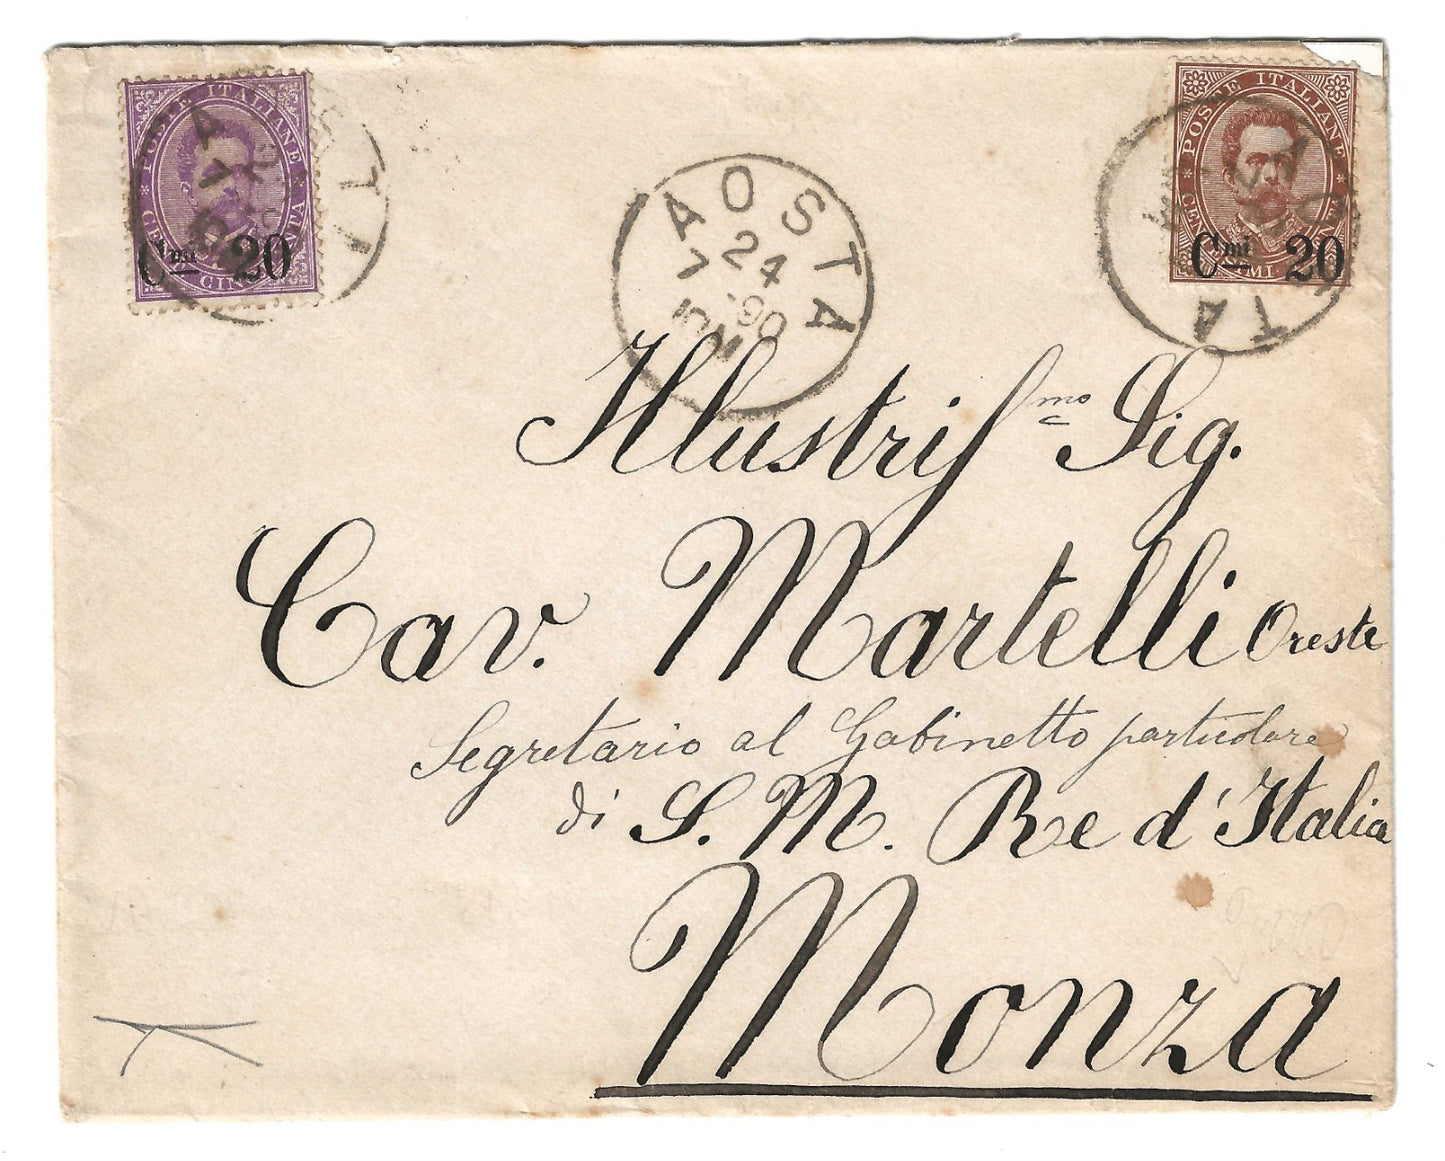 POSTE ITALIANE
CINQUANTA
Cmi 20
POSTE ITALIANE
Cmi 20
AOSTA
24
7 '90
10M
TA
Illustrissmo Sig.
Cav. Martelli Oreste
Segretario al Gabinetto particolare
di S. M. Re d'Italia
Monza